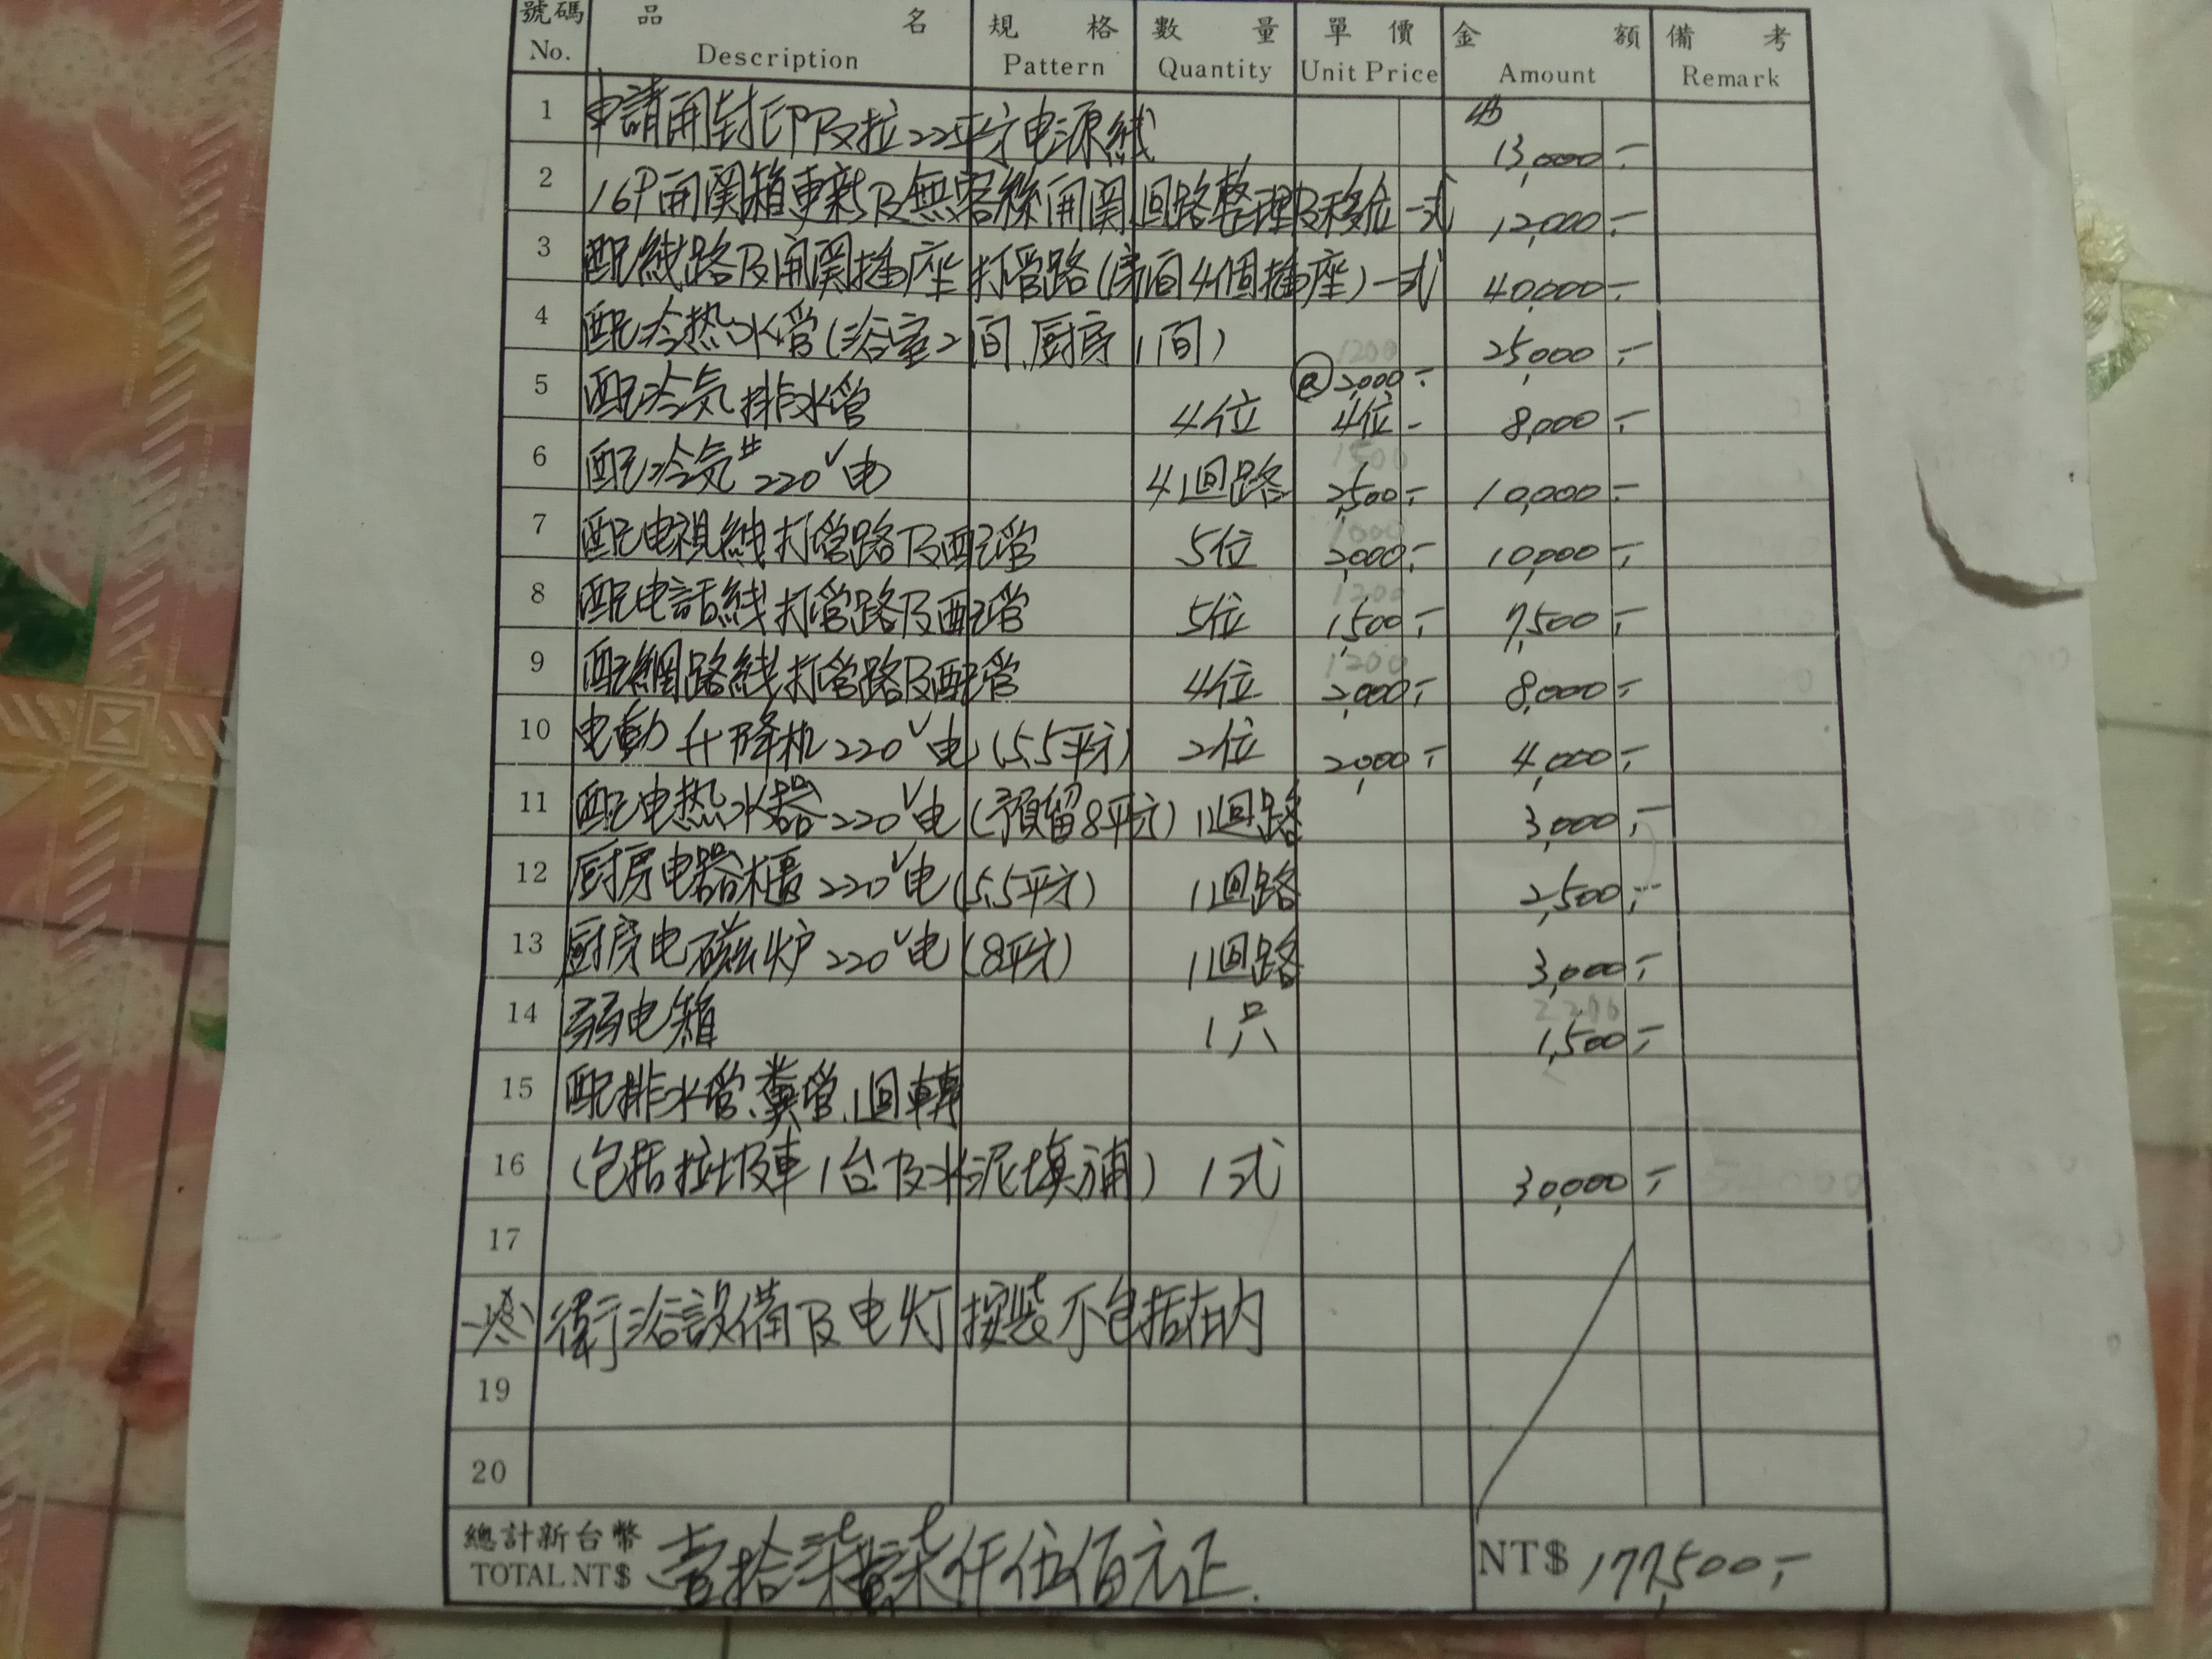 號碼 品名 規格 數量 單價 金額 備考
No. Description Pattern Quantity Unit Price Amount Remark
1 申請開封印及拉22平方电源线 13,000.-
2 16P開関箱更新及無客絲開関迴路整理及移位一式 12,000.-
3 配线路及開関插座打管路(房间4個插座)一式 40,000.-
4 配冷热水管(浴室2间、厨房1间) 25,000.-
1200
@2,000.-
5 配冷気排水管 4位 4位- 8,000.-
1500
6 配冷気 220V电 4迴路 2,500.- 10,000.-
1000
7 配电視线打管路及配管 5位 2,000.- 10,000.-
1200
8 配电話线打管路及配管 5位 1,500.- 7,500.-
1200
9 配網路线打管路及配管 4位 2,000.- 8,000.-
10 电動升降机220V电(5.5平方) 2位 2,000.- 4,000.-
11 配电热水器220V电(預留8平方) 1迴路 3,000.-
12 厨房电器櫃220V电(5.5平方) 1迴路 2,500.-
13 厨房电磁炉220V电(8平方) 1迴路 3,000.-
2200
14 弱电箱 1只 1,500.-
15 配排水管、糞管、迴轉
16 (包括垃圾車1台及水泥填補) 1式 30,000.-
17
衛浴設備及电灯按裝不包括在内
19
20
總計新台幣 壹拾柒萬柒仟伍佰元正.
TOTAL NT$ NT$ 177,500.-